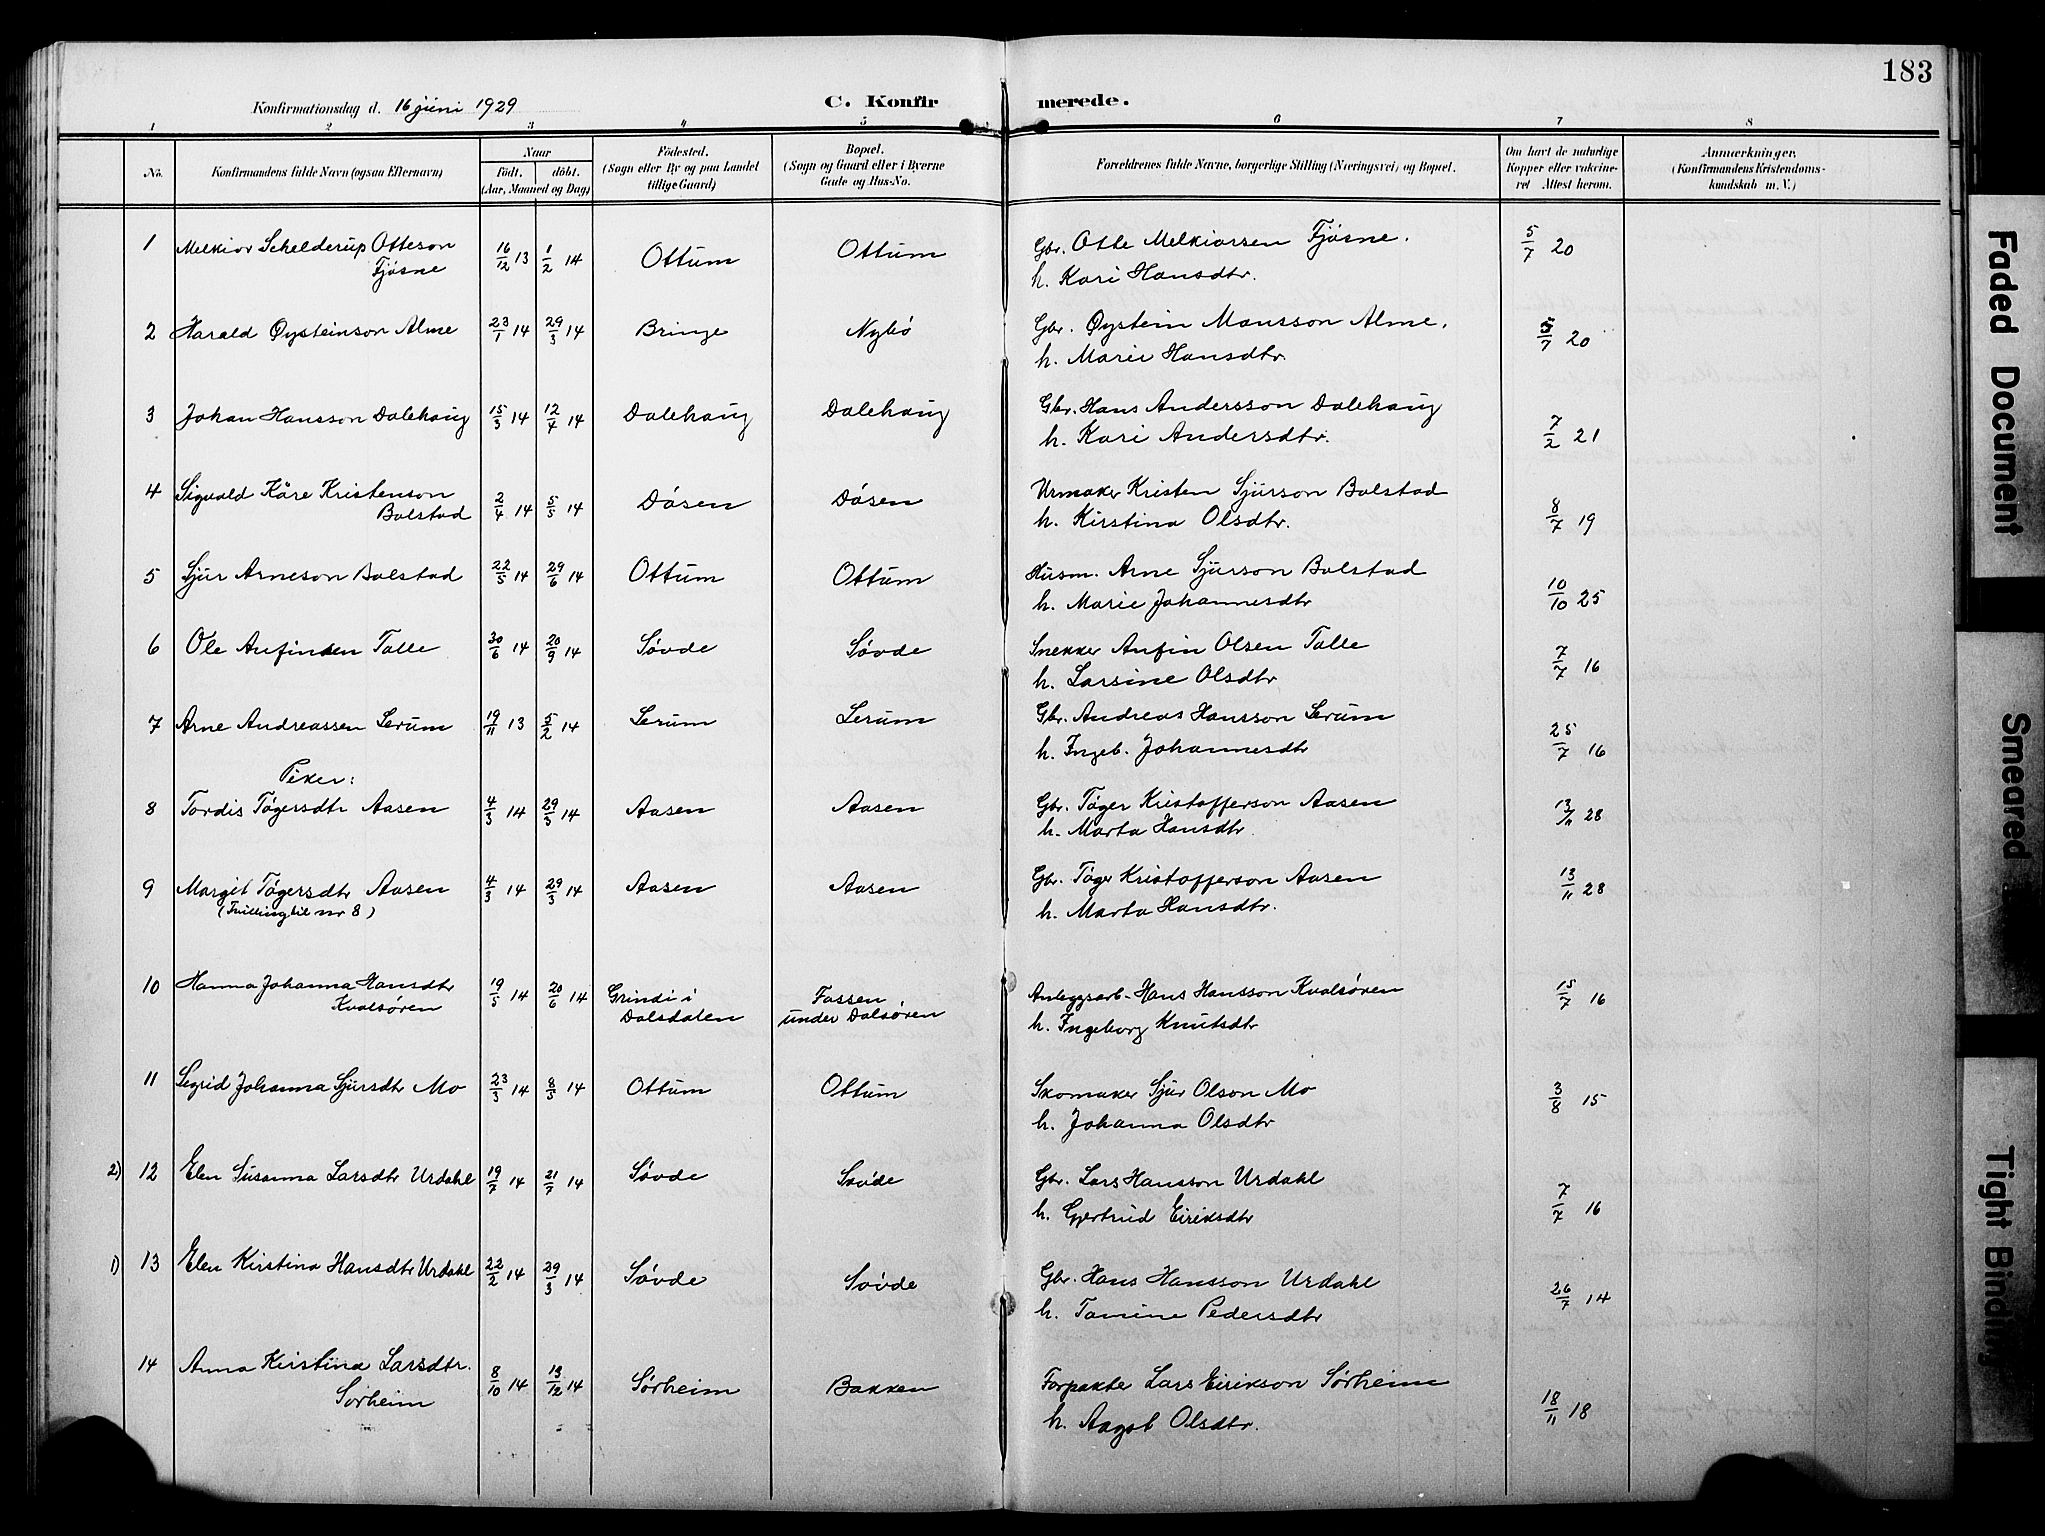 183
Konfirmationsdag d. 16 juni 1929
C. Konfirmerede.
1 2 3 4 5 6 7 8
No.
Konfirmandens fulde Navn (ogsaa Efternavn)
Naar
Født. døbt.
(Aar, Maaned og Dag)
Fødested.
(Sogn eller By og paa Landet
tillige Gaard)
Bopæl.
(Sogn og Gaard eller i Byerne
Gade og Hus-No.
Forældrenes fulde Navne, borgerlige Stilling (Næringsvei) og Bopæl.
Om havt de naturlige
Kopper eller vakcine-
ret Attest herom.
Anmærkninger.
(Konfirmandens Kristendoms-
kundskab m. V.)
1 Melkior Schelderup Otteson 16/12 13 1/2 14 Ottum Ottum Gbr. Otte Melkiorsen Fjøsne. 5/7 20
Fjøsne h. Kari Hansdtr.
2 Harald Øysteinson Alme 23/1 14 29/3 14 Bringe Nybø Gbr. Øystein Monsson Alme. 5/7 20
h. Marie Hansdtr.
3 Johan Hansson Dalehaug 15/3 14 12/4 14 Dalehaug Dalehaug Gbr. Hans Andersson Dalehaug
h. Kari Andersdtr. 7/2 21
4 Sigvald Kåre Kristenson 2/4 14 5/5 14 Døsen Døsen Urmaker Kristen Sjurson Bolstad
Bolstad h. Kirstina Olsdtr. 8/7 19
5 Sjur Arneson Bolstad 22/5 14 29/6 14 Ottum Ottum Husm. Arne Sjurson Bolstad
h. Marie Johannesdtr 10/10 25
6 Ole Anfinsen Talle 30/6 14 20/9 14 Søvde Søvde Snekker Anfin Olsen Talle
h. Larsine Olsdtr 7/7 16
7 Arne Andreassen Serum 19/11 13 5/2 14 Serum Serum Gbr. Andreas Hansson Serum
h. Ingeb. Johannesdtr 25/7 16
Piker:
8 Tordis Tøgersdtr Aasen 4/3 14 29/3 14 Aasen Aasen Gbr. Tøger Kristofferson Aasen 13/11 28
h. Marta Hansdtr.
9 Margit Tøgersdtr Aasen 4/3 14 29/3 14 Aasen Aasen Gbr. Tøger Kristofferson Aasen 13/11 28
(Tvilling til nr 8) h. Marta Hansdtr.
10 Hanna Johanna Hansdtr 19/5 14 20/6 14 Grindi i Fossen Anleggsarb. Hans Hansson Kvalsøren 15/7 16
Kvalsøren Dalsdalen under Dalsøren h. Ingeborg Knutsdtr
11 Sigrid Johanna Sjursdtr Mo 23/3 14 8/5 14 Ottum Ottum Skomaker Sjur Olson Mo 3/8 15
h. Johanna Olsdtr
2) 12 Elen Susanna Larsdtr Urdahl 19/7 14 21/7 14 Søvde Søvde Gbr. Lars Hansson Urdahl
h. Gjertrud Eiriksdtr 7/7 16
1) 13 Elen Kirstina Hansdtr Urdahl 22/2 14 29/3 14 Søvde Søvde Gbr. Hans Hansson Urdahl
h. Tomine Pedersdtr 26/7 14
14 Anna Kirstina Larsdtr. 8/10 14 13/12 14 Sørheim Bakken Forpakter Lars Eirikson Sørheim
Sørheim h. Aagot Olsdtr. 18/11 18
Faded Document
Smeared
Tight Binding